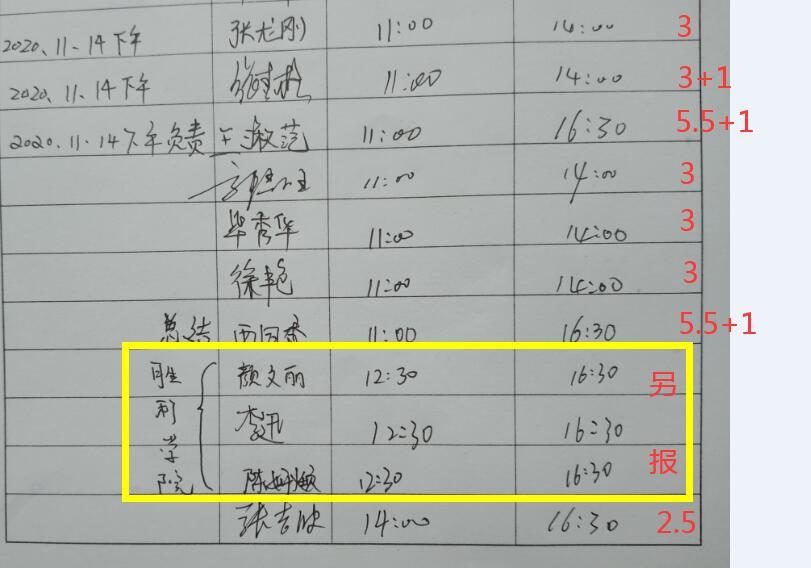 2020.11.14下午 张龙刚 11:00 14:00 3
2020.11.14下午 11:00 14:00 3+1
2020.11.14下午负责 王淑范 11:00 16:30 5.5+1
11:00 14:00 3
毕秀华 11:00 14:00 3
徐艳 11:00 14:00 3
总结 11:00 16:30 5.5+1
胜利学院 颜文丽 12:30 16:30 另
李迅 12:30 16:30
12:30 16:30 报
14:00 16:30 2.5